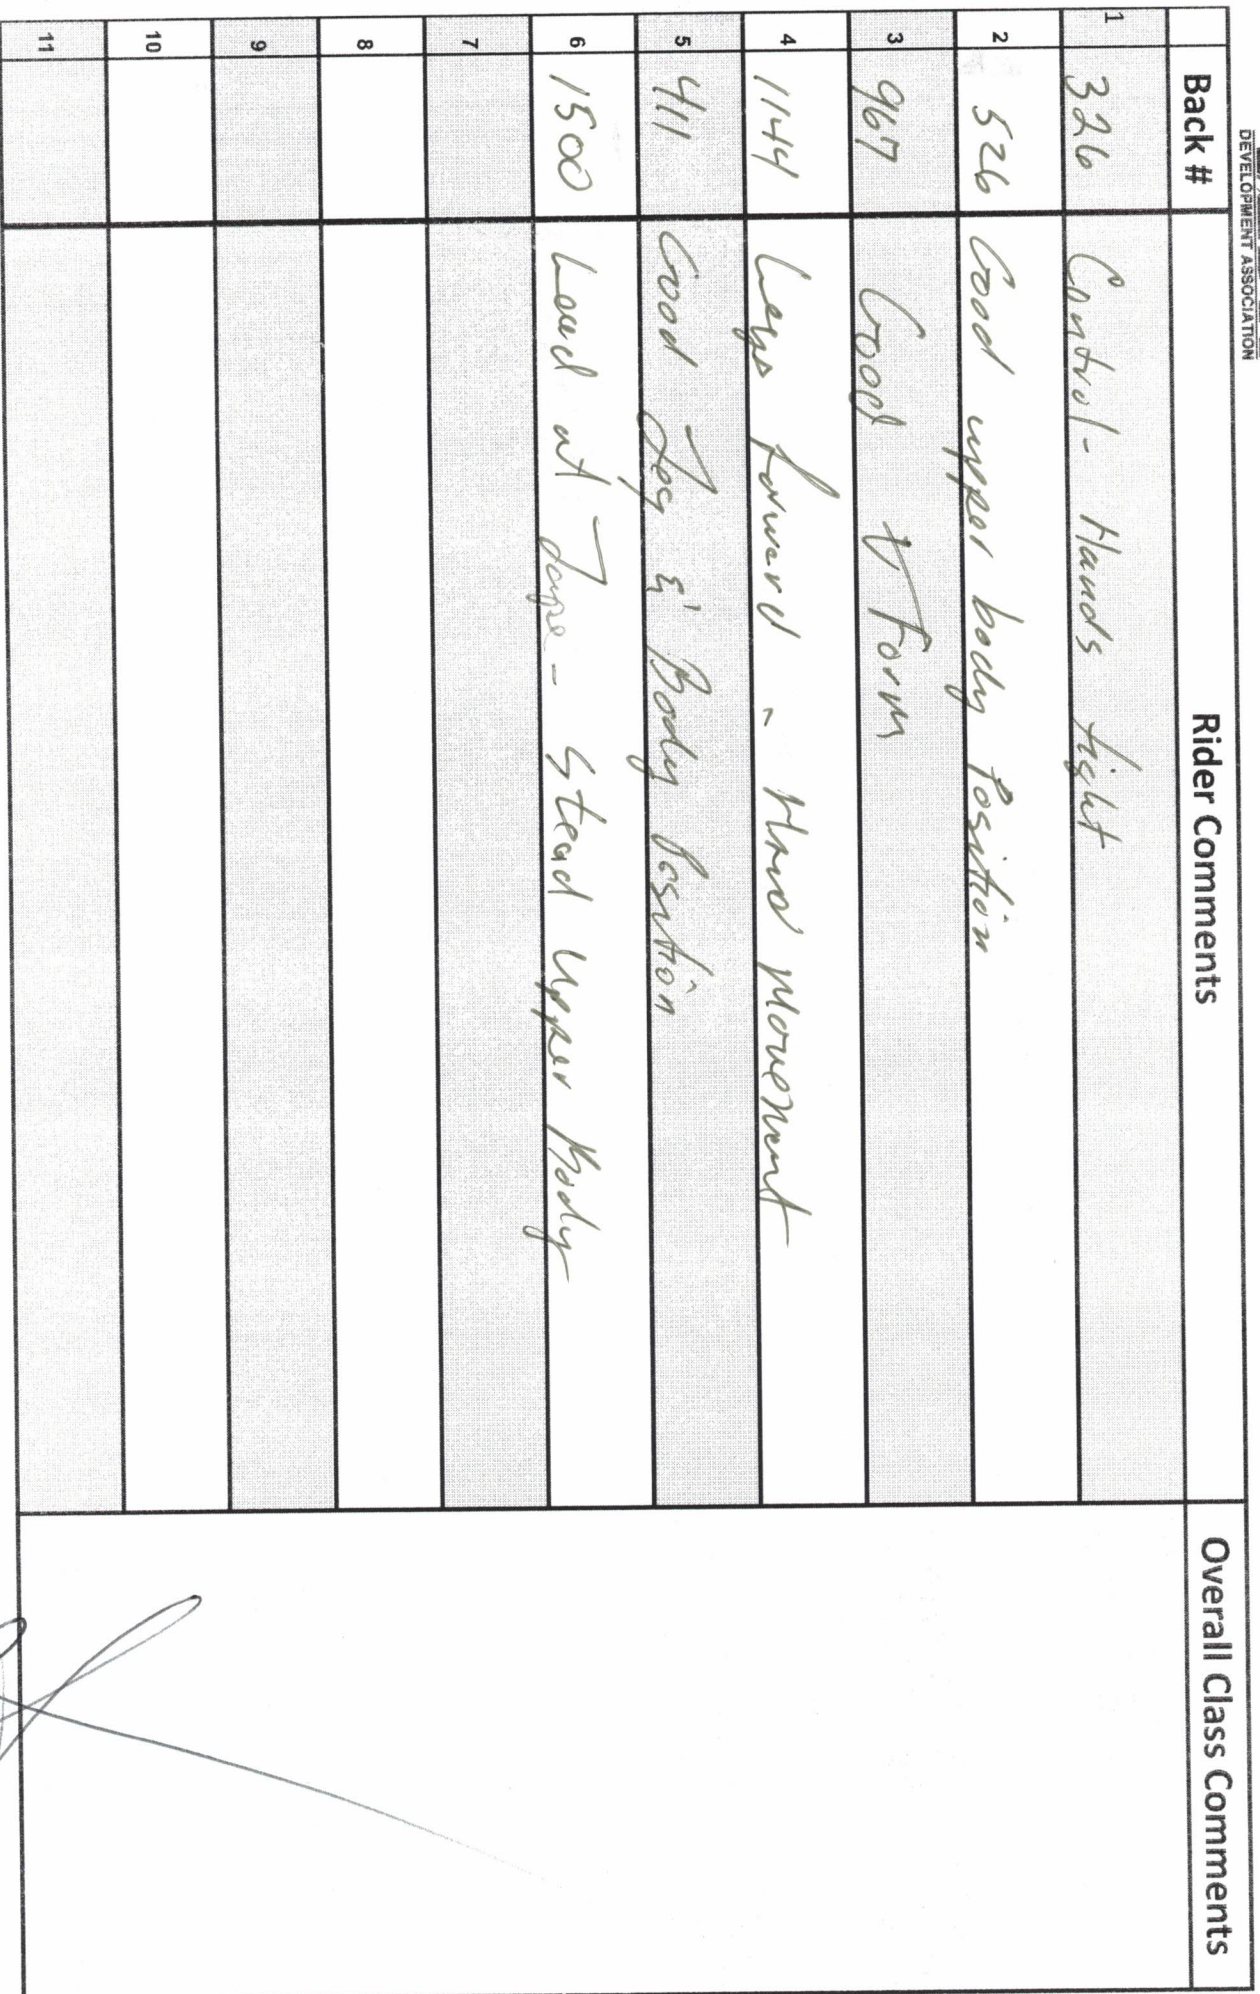 DEVELOPMENT ASSOCIATION
Back # Rider Comments Overall Class Comments
1 326 Control - Hands tight
2 526 Good upper body Position
3 967 Good Form
4 1144 Legs forward - Hand movement
5 411 Good Leg & Body Position
6 1500 Lead at Lope - Stead Upper Body
7
8
9
10
11